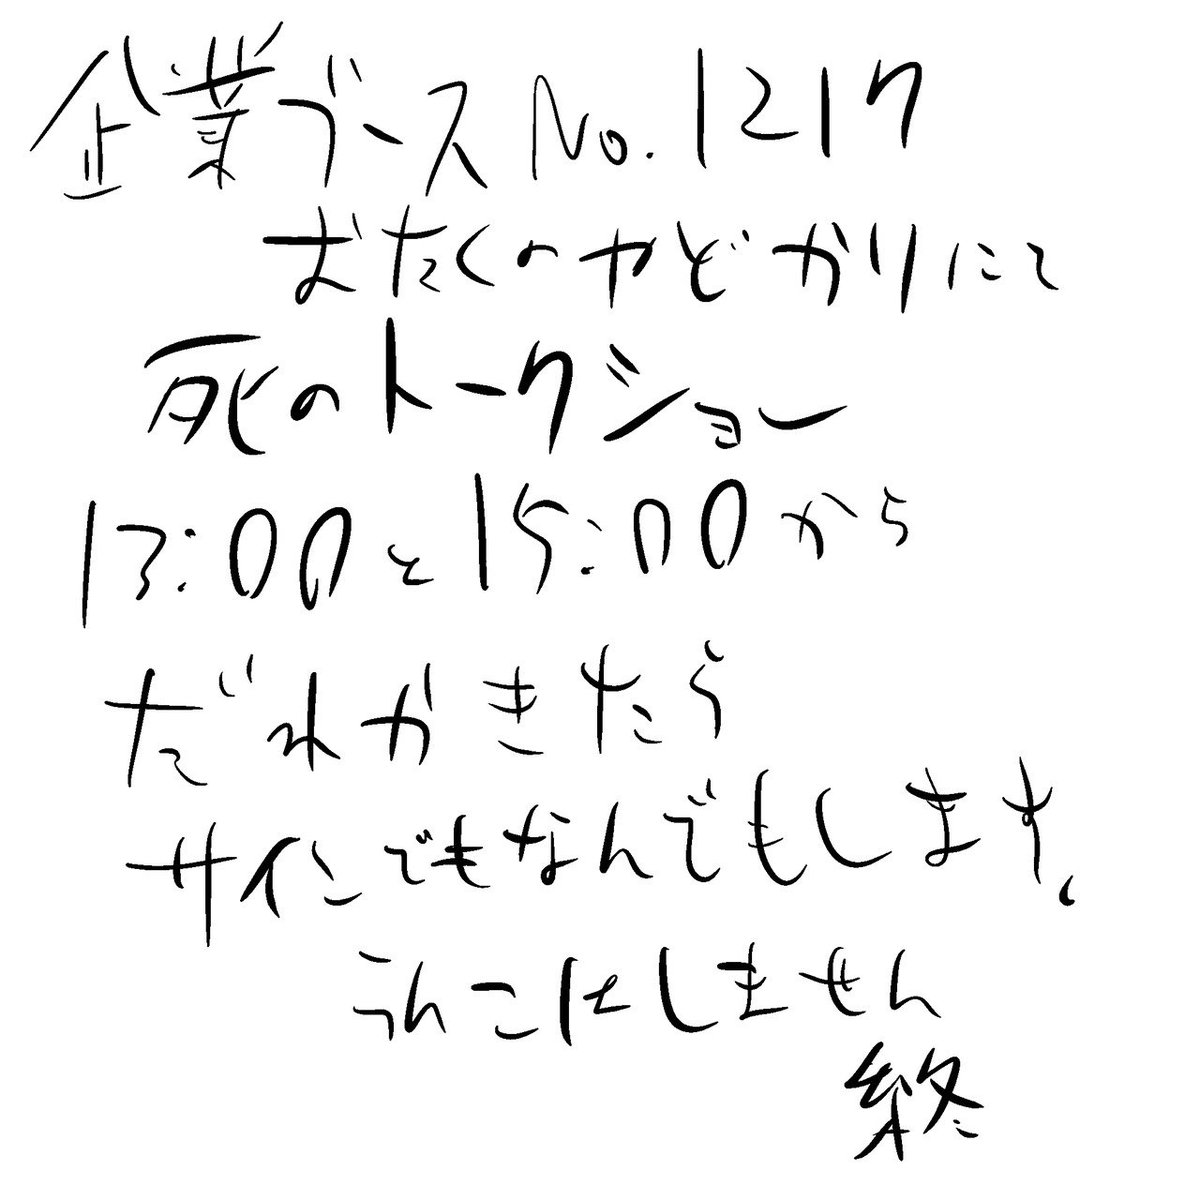 企業ブースNo.1217
おたくのやどかりにて
死のトークショー
13:00と15:00から
だれがきたら
サインでもなんでもします。
うんこはしません
終